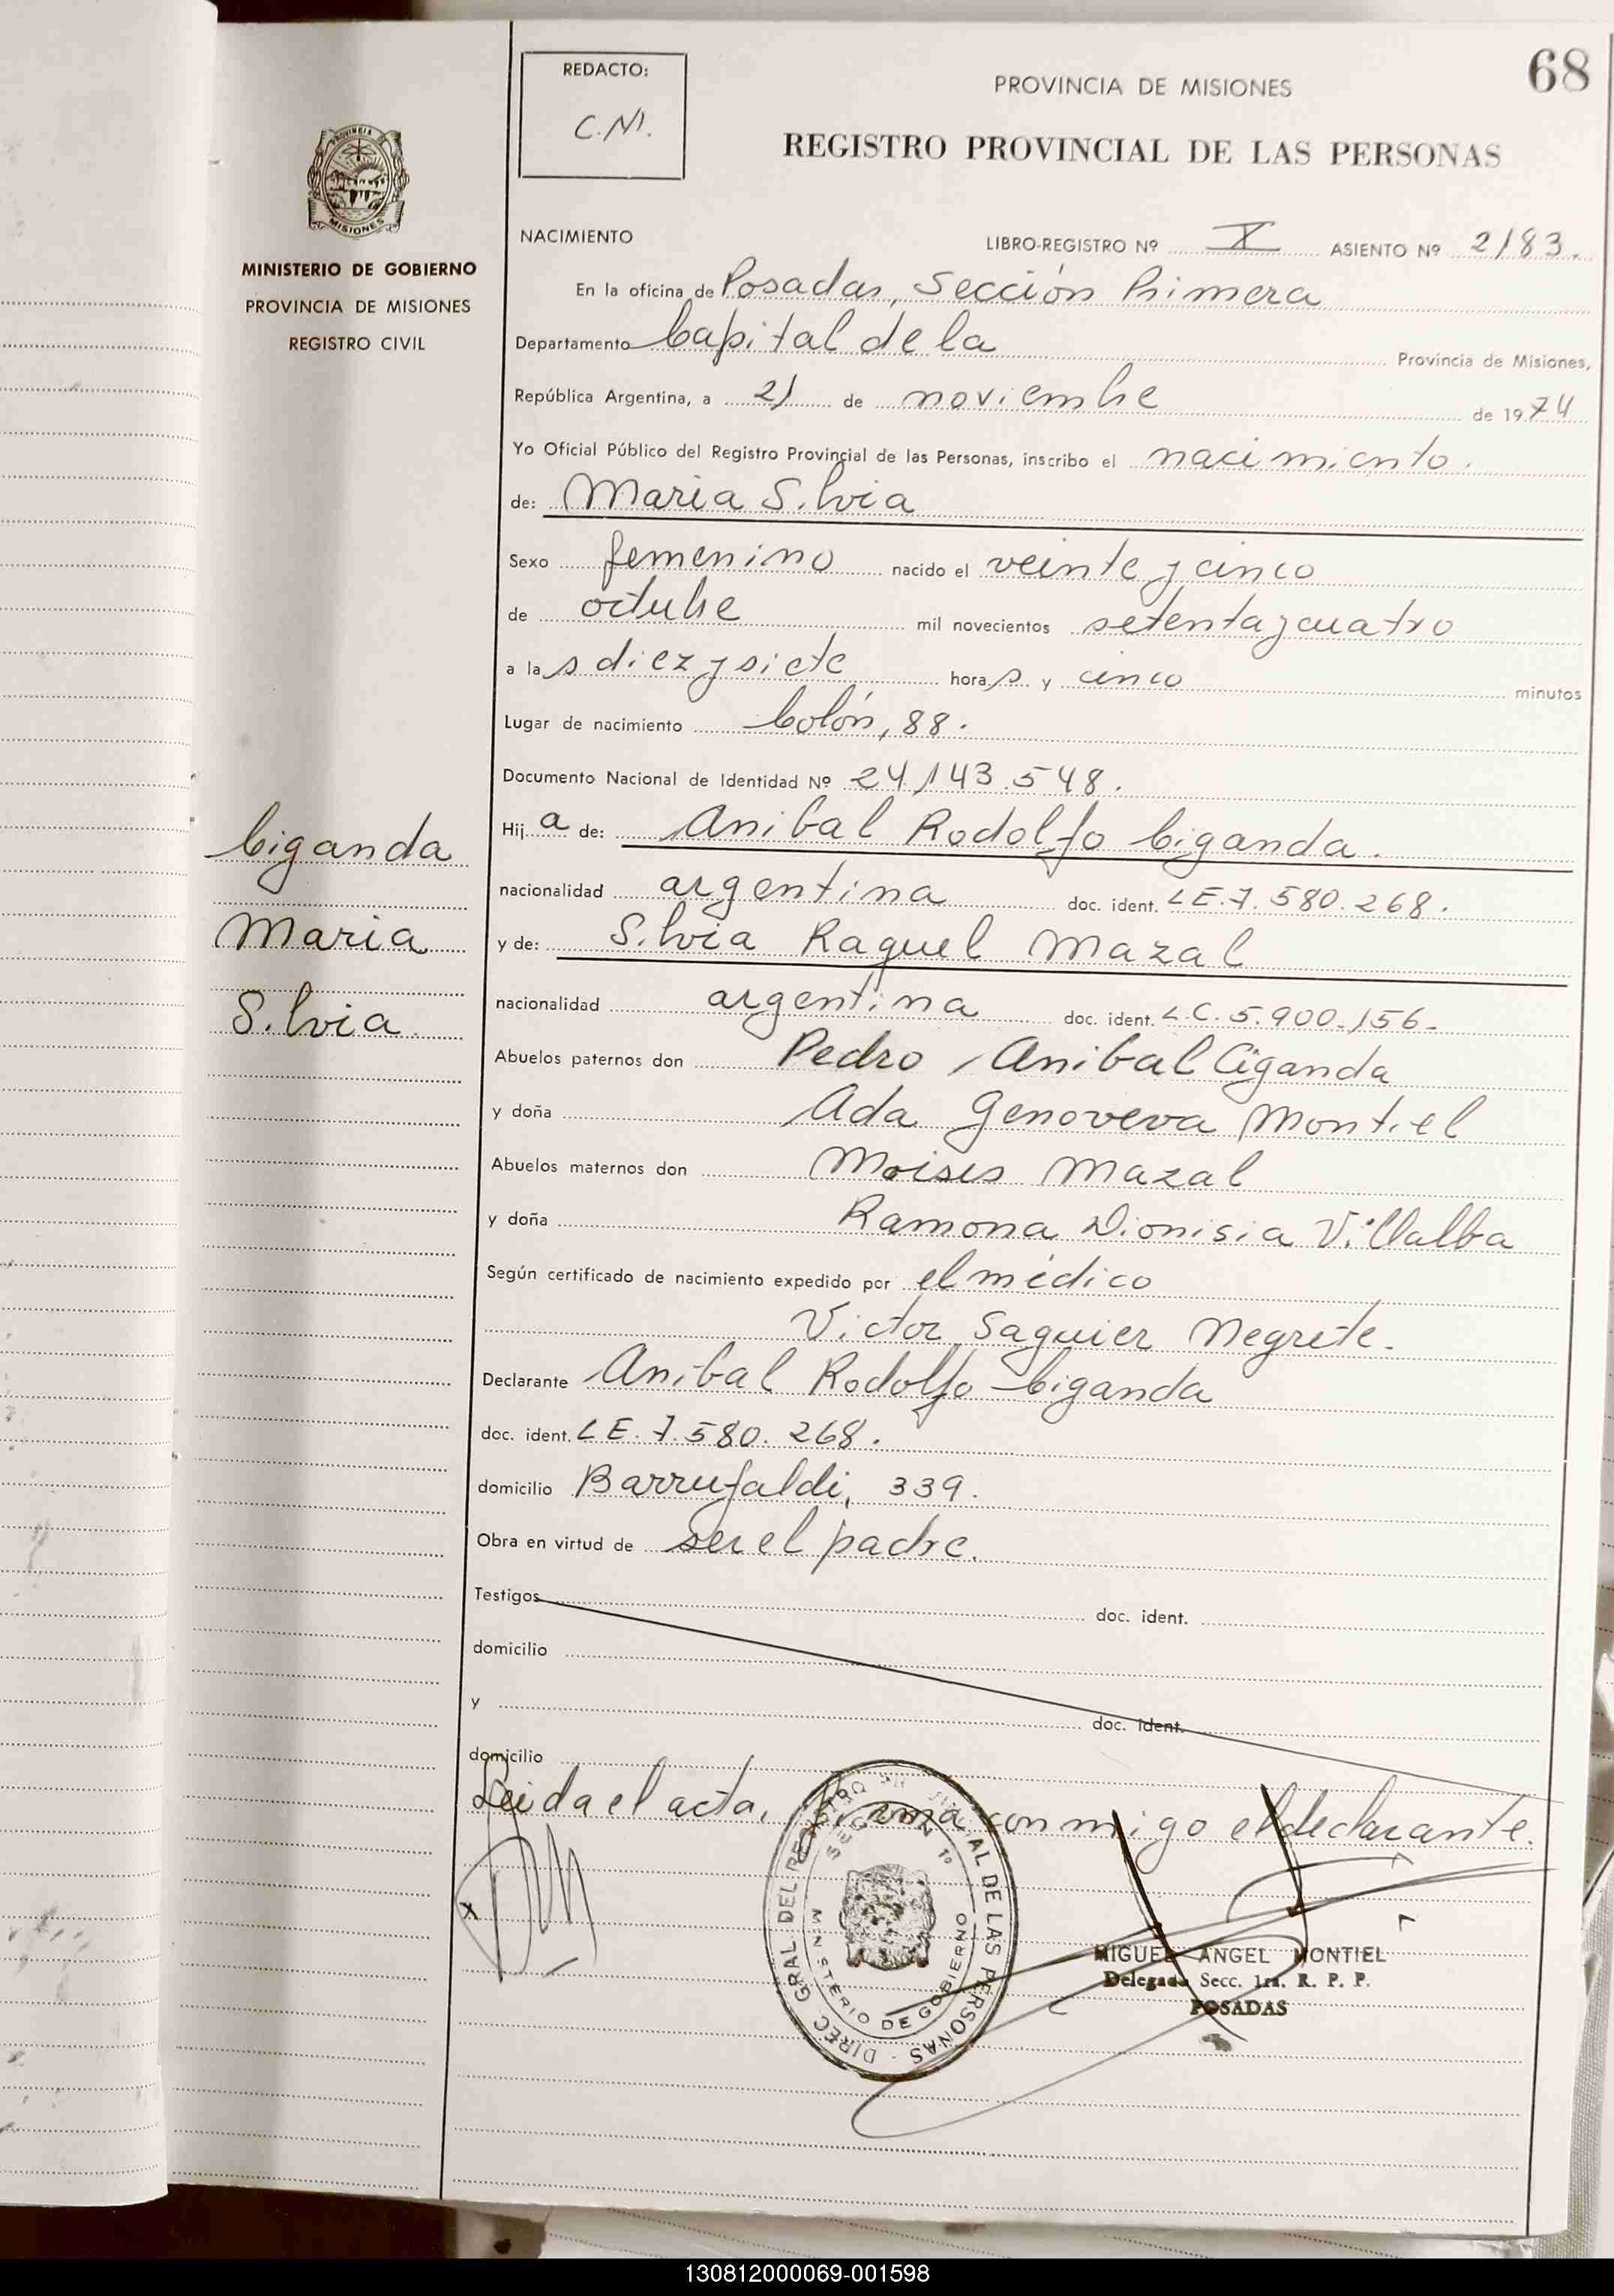 68
REDACTO:
C.N.
PROVINCIA DE MISIONES
REGISTRO PROVINCIAL DE LAS PERSONAS
PROVINCIA
MISIONES
MINISTERIO DE GOBIERNO
PROVINCIA DE MISIONES
REGISTRO CIVIL
Ciganda
Maria
Silvia
NACIMIENTO LIBRO-REGISTRO Nº X ASIENTO Nº 2183.
En la oficina de Posadas, Sección Primera
Departamento Capital de la Provincia de Misiones,
República Argentina, a 21 de noviembre de 1974
Yo Oficial Público del Registro Provincial de las Personas, inscribo el nacimiento.
de: Maria Silvia
Sexo femenino nacido el veinte y cinco
de octubre mil novecientos setenta y cuatro
a la s diez y siete hora s y cinco minutos
Lugar de nacimiento Colón, 88.
Documento Nacional de Identidad Nº 24.143.548.
Hij a de: Anibal Rodolfo Ciganda.
nacionalidad argentina doc. ident. L.E. 7.580.268.
y de: Silvia Raquel Mazal
nacionalidad argentina doc. ident. L.C. 5.900.156-
Abuelos paternos don Pedro Anibal Ciganda
y doña Ada Genoveva Montiel
Abuelos maternos don Moises Mazal
y doña Ramona Dionisia Villalba
Según certificado de nacimiento expedido por el médico
Victor Saguier Negrete.
Declarante Anibal Rodolfo Ciganda
doc. ident. L E. 7.580.268.
domicilio Barrufaldi, 339.
Obra en virtud de ser el padre.
Testigos doc. ident.
domicilio
y doc. ident.
domicilio
Leida el acta, firma conmigo el declarante.
DIREC. GRAL DEL REGISTRO PROVINCIAL DE LAS PERSONAS
SECCION 1º
MINISTERIO DE GOBIERNO
MIGUEL ANGEL MONTIEL
Delegado Secc. 1ra. R. P. P.
POSADAS
130812000069-001598